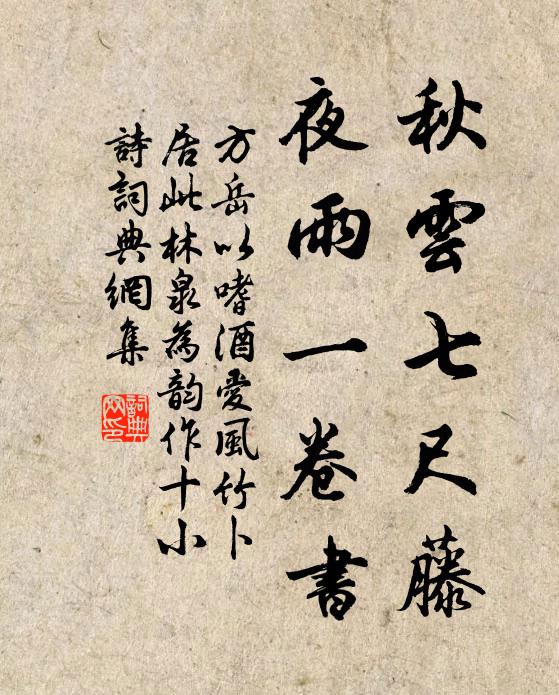 秋雲七尺藤
夜雨一卷書
方岳以嗜酒愛風竹卜
居此林泉為韵作十小
詩詞典網集
詞典
网印